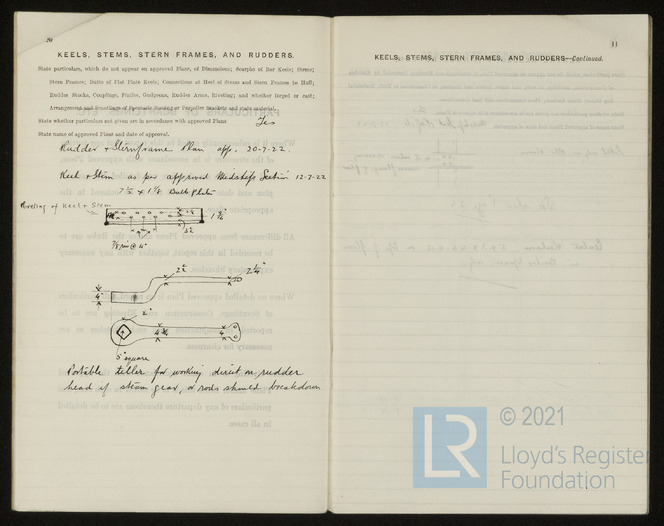 20
KEELS, STEMS, STERN FRAMES, AND RUDDERS.
State particulars, which do not appear on approved Plans, of Dimensions; Scarphs of Bar Keels; Stems;
Stern Frames; Butts of Flat Plate Keels; Connections at Heel of Stems and Stern Frames to Hull;
Rudder Stocks, Couplings, Pintles, Gudgeons, Rudder Arms, Riveting; and whether forged or cast;
Arrangement and Scantlings of Spectacle Bossing or Propeller Brackets and state material.
State whether particulars not given are in accordance with approved Plans Yes
State name of approved Plans and date of approval.
Rudder + Sternframe Plan app. 20-7-22.
Keel + Stem as per approved Midship Section 12-7-22
7½ × 1⅞ Bulb Plate
Riveting of Keel + Stem
7/8 rivs @
4"
2"
4
4
5" square
Portable tiller for working direct on rudder
head if steam gear, or rods should breakdown
11
KEELS, STEMS, STERN FRAMES, AND RUDDERS—Continued.
LR
© 2021
Lloyd's Register
Foundation